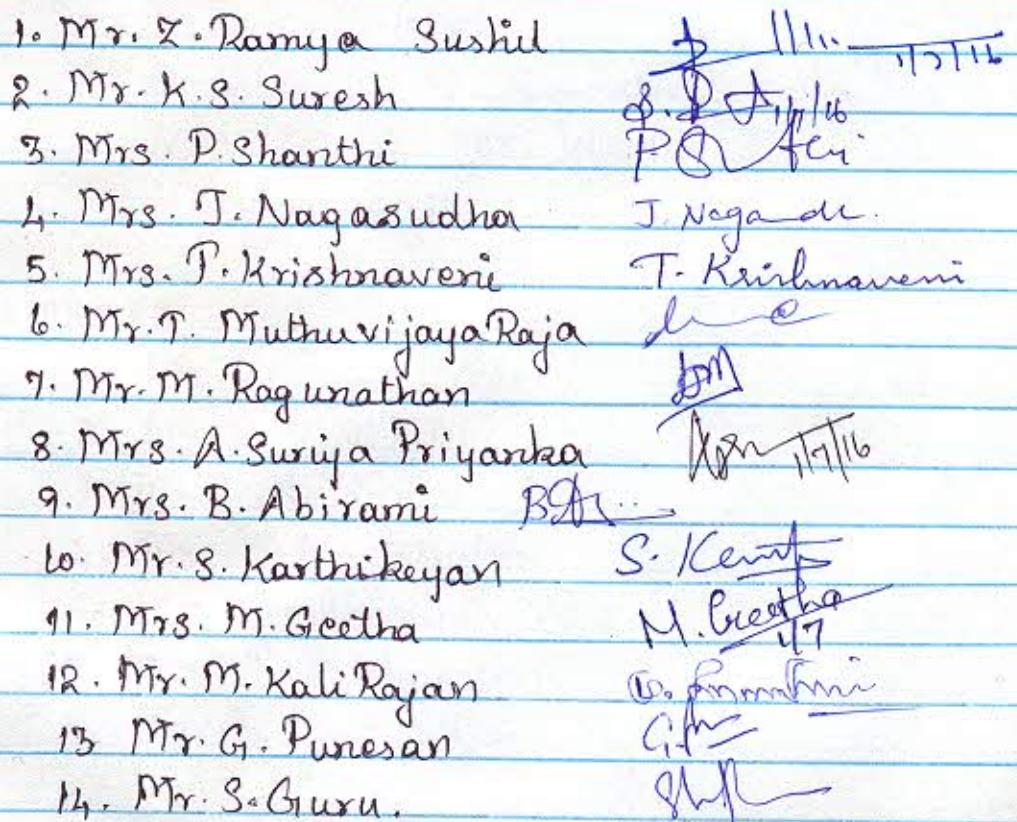 1. Mr. Z. Ramya Sushil 1/7/16
2. Mr. K.S. Suresh 1/7/16
3. Mrs. P. Shanthi
4. Mrs. J. Nagasudha J. Naga
5. Mrs. T. Krishnaveni T. Krishnaveni
6. Mr. T. Muthuvijaya Raja
7. Mr. M. Ragunathan
8. Mrs. A. Suriya Priyanka 1/7/16
9. Mrs. B. Abirami
10. Mr. S. Karthikeyan S.
11. Mrs. M. Geetha M. Geetha 1/7
12. Mr. M. Kali Rajan
13 Mr. G. Punesan
14. Mr. S. Guru.